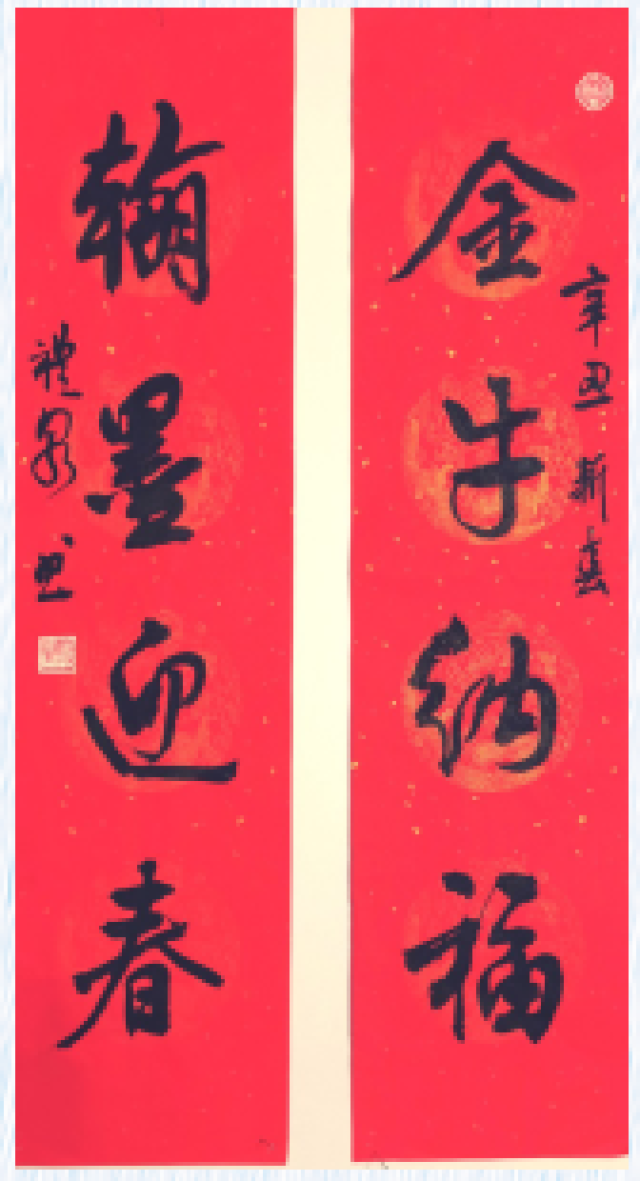 金牛纳福
辛丑新春
翰墨迎春
礼泉书